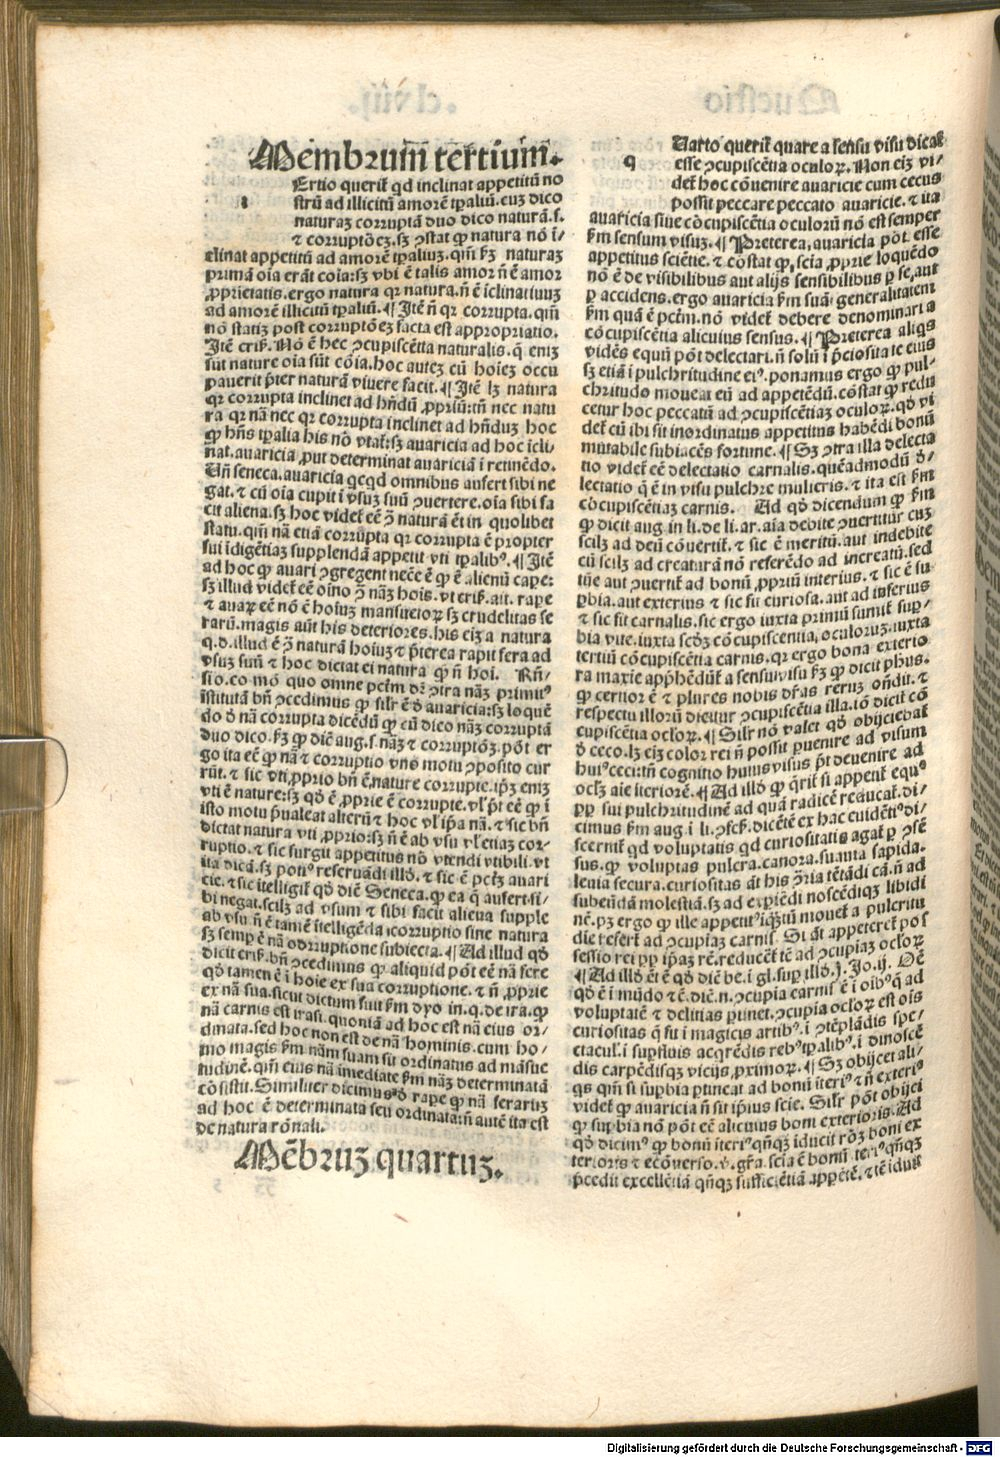 Membrum tertium.
Ertio querit᷑ qd inclinat appetitū no
strū ad illicitū amorē tꝑaliū. cuꝫ dico
naturaꝫ corruptā duo dico naturā. s.
⁊ corruptōeꝫ. sꝫ ꝯstat ꝙ natura nō ī/
clinat appetitū ad amorē tꝑaliuꝫ. qm̄ ẜm naturaꝫ
primā oīa erāt coīa: sꝫ vbi ē talis amor n̄ ē amor
ꝓprietatis. ergo natura qꝛ natura. n̄ ē īclinatiuuꝫ
ad amorē illicitū tꝑaliū. ¶ Itē n̄ qꝛ corrupta. qm̄
nō statiꝫ post corruptōeꝫ facta est appropriatio.
Itē crīs. Nō ē hec ꝯcupiscētia naturalis. q̄ eniꝫ
sūt nature oīa sūt cōīa. hoc auteꝫ cū hoīeꝫ occu
pauerit p̄ter naturā viuere facit. ¶ Itē lꝫ natura
qꝛ corrupta inclinet ad hn̄dū ꝓpriū: tn̄ nec natu
ra qꝛ nā nec qꝛ corrupta inclinet ad hn̄duꝫ hoc
ꝙ hn̄s tꝑalia his nō vtat᷑: sꝫ auaricia ad hoc īcli
nat. auaricia ꝓut determinat auariciā ī retinēdo.
Un̄ seneca. auaricia qcqd omnibus aufert sibi ne
gat. ⁊ cū oīa cupit ī vsuꝫ suū ꝯuertere. oīa sibi fa
cit aliena. sꝫ hoc videt᷑ eē ꝯ̄ naturā ēt in quolibet
statu. qm̄ nā etiā corrupta qꝛ corrupta ē propter
sui īdigētiaꝫ supplendā appetit vti tꝑalibꝰ. ¶ Itē
ad hoc ꝙ auari ꝯgregent necēē ē ꝙ ē alienū cape:
sꝫ illud videt᷑ eē oīno ꝯ̄ nāꝫ hoīs. vt crīs. ait. rape
⁊ auaꝝ eē nō ē hoīuꝫ mansuetoꝝ sꝫ crudelitas fe
rarū. magis aūt his deteriores. his eiꝫ a natura
q. d. illud ē ꝯ̄ naturā hoīuꝫ ⁊ p̄terea rapit fera ad
vsuꝫ suū ⁊ hoc dictat ei natura ꝙ n̄ hoī. Rn̄/
sio. eo mō quo omne pctm̄ dr̄ ꝯtra nāꝫ primitꝰ
īstitutā bn̄ ꝯcedimus ꝙ silr ē ꝺ auaricia: sꝫ loquē
do ꝺ nā corrupta dicēdū ꝙ cū dico nāꝫ corruptā
duo dico. ẜꝫ ꝙ dic̄ aug. s. nāꝫ ⁊ corruptōꝫ. pōt er
go ita eē ꝙ nā ⁊ corruptio vno motu ꝓposito cur
rūt. ⁊ sic vti ꝓprio bn̄ ē nature corrupte. ip̄ꝫ eniꝫ
vti ē nature: sꝫ qꝺ ē ꝓprie ē corrupte. vl̓ pt̄ eē ꝙ ī
isto motu p̄ualeat alterū ⁊ hoc vl̓ ip̄a nā. ⁊ sic bn̄
dictat natura vti ꝓprio: sꝫ n̄ ē ab vsu vl̓ etiaꝫ cor-
ruptio. ⁊ sic surgit appetitus nō vtendi vtibili. vt
ita dicā. sꝫ potiꝰ reseruādi illꝺ. ⁊ sic ē pctꝫ auari
cie. ⁊ sic ītelligit᷑ qꝺ dic̄ Seneca. ꝙ ea q̄ aufert si/
bi negat. scilꝫ ad vsum ⁊ sibi facit aliena supple
ab vsu. n̄ ē tamē ītelligēda ī corruptio sine natura
sꝫ semꝑ ē nā corruptione subiecta. ¶ Ad illud qꝺ
dicit crīs. bn̄ ꝯcedimus ꝙ aliquid pōt eē nā fere
qꝺ tamen ē ī hoīe ex sua corruptione. ⁊ n̄ ꝓprie
ex nā sua. sicut dictum fuit ẜm dyo in. q. de ira. ꝙ
nā carnis est irasi. quoniā ad hoc est nā eius or/
dinata. sed hoc non est de nā hominis. cum ho/
mo magis ẜm nām suam sit ordinatus ad māsue
tudinē. qm̄ eius nā īmediate ẜm nāꝫ determinatā
cōsistit. Similiter dicimus ꝺ rape ꝙ nā ferartꝫ
ad hoc ē determinata seu ordinata: n̄ autē ita est
de natura rōnali.
Mēbruꝫ quartuꝫ.
q
Uarto querit᷑ quare a sensu visu dicat᷑
esse ꝯcupiscētia oculoꝝ. Non eiꝫ vi/
det᷑ hoc cōuenire auaricie cum cecus
possit peccare peccato auaricie. ⁊ ita
auaricia siue cōcupiscētia oculorū nō est semper
ẜm sensum visuꝫ. ¶ Preterea, auaricia pōt esse
appetitus sciētie. ⁊ cōstat ꝙ, scīa ꝓprie loquēdo
nō ē de visibilibus aut alijs sensibilibus ꝑ se, aut
ꝑ accidens. ergo auaricia ẜm suā generalitatem
ẜm quā ē pctm̄. nō videt᷑ debere denominari a
cōcupiscētia alicuius sensus. ¶ Preterea aliqs
vidēs equū pōt delectari. n̄ solū ī p̄ciositate eius
sꝫ etiā ī pulchritudine eiꝰ. ponamus ergo ꝙ pul-
chritudo moueat eū ad appetēdū. cōstat ꝙ redu
cetur hoc peccatū ad ꝯcupiscētiaꝫ oculoꝝ. qꝺ vi
det᷑ cū ibi sit inordinatus appetitus habēdi bonū
mutabile subiacēs fortune. ¶ Sꝫ ꝯtra illa delecta
tio videt᷑ eē delectatio carnalis. quēadmodū ꝺ/
lectatio q̄ ē in visu pulchre mulieris. ⁊ ita est ẜm
cōcupiscētiaꝫ carnis. Ad qꝺ dicendum ꝙ ẜm
ꝙ dicit aug. in li. de li. ar. aīa debite ꝯuertitur cuꝫ
scilꝫ ad deū cōuertit᷑. ⁊ sic ē meritū. aut indebite
cū scilꝫ ad creaturā nō referēdo ad increatū. sed
tūc aut ꝯuertit᷑ ad bonū ꝓpriū interius. ⁊ sic ē su
ꝑbia. aut exterius ⁊ sic fit curiosa. aut ad inferius
⁊ sic fit carnalis. sic ergo iuxta primū sumit᷑ suꝑ/
bia vite. iuxta scꝺꝫ cōcupiscentia, oculoruꝫ. iuxta
tertiū cōcupiscētia carnis. qꝛ ergo bona exterio
ra maxīe app̄hēdūt᷑ a sensu visu ẜꝫ ꝙ dicit phūs.
ꝙ certior ē ⁊ plures nobis dr̄as rerūꝫ on̄dit. ⁊
respectu illorū dicitur ꝯcupiscētia illa. iō dicit᷑ cō
cupiscētia oclōꝝ. ¶ Silr nō valet qꝺ obijciebat᷑
ꝺ ceco. lꝫ eiꝫ color rei n̄ possit ꝑuenire ad visum
huiꝰ ceci: tn̄ cognitio huius visus p̄t deuenire ad
oclꝫ aīe īteriorē. ¶ Ad illꝺ ꝙ q̄rit᷑ si appetit᷑ equꝰ
ꝓꝑ sui pulchritudinē ad quā radicē reducat᷑. di/
cimus ẜm aug. ī li. ꝯfeſ̄. dicētē ex hac euidētiꝰ di/
scernit᷑ qd voluptatis qd curiositatis agat᷑ ꝑ ꝯsē
sus. ꝙ voluptas pulcra. canora. suauia sapida.
lenia secura. curiositas āt his ꝯ̄ria tētādi cā. n̄ ad
subeūdā molestiā. sꝫ ad expiēdi noscēdiqꝫ libidi
nē. pꝫ ergo ꝙ ille appetitꝰ iqꝫtū mouet᷑ a pulcritu
dīe refert᷑ ad ꝯcupiaꝫ carnis. Si āt appeteret᷑ pos
sessio rei ꝓꝑ ip̄aꝫ rē. reducet᷑ tē ad ꝯcupiaꝫ oclōꝝ
¶ Ad illꝺ ēt ē qꝺ dic̄ be. ī gl. suꝑ illꝺ. j. Jo. ij. Oē
qꝺ ē ī mūdo ⁊ē. dic̄. n. ꝯcupia carnis ē ī oībꝰ q̄ ad
voluptatē ⁊ delitias ꝑtinet. ꝯcupia oclōꝝ est oīs
curiositas q̄ fit ī magicis artibꝰ. ī ꝯtēplādis spe/
ctacul̓. ī suꝑfluis acqrēdis rebꝰ tꝑalibꝰ. ī dinoscē
dis carpēdisqꝫ vicijs ꝓximoꝝ. ¶ Sꝫ obijcet ali/
qs qm̄ si suꝑbia ꝑtineat ad bonū īteriꝰ ⁊ n̄ exteriꝰ
videt᷑ ꝙ auaricia n̄ sit ip̄ius scīe. Silr pōt obijci
ꝙ suꝑbia nō pōt eē alicuius boni exterioris. Ad
qꝺ dicimꝰ ꝙ bonū īteriꝰ qn̄qꝫ īducit rōꝫ boni ex
terioris ⁊ ecōuerso. v. gr̄a. scīa ē bonū īteriꝰ qn̄qꝫ
p̄cedit excellētiā qn̄qꝫ sufficiētiā apparētē. ⁊ iē iduit
Digitalisierung gefördert durch die Deutsche Forschungsgemeinschaft - DFG